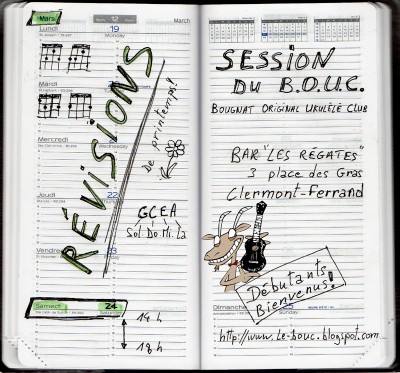 Mars
12
March
Lundi
19
Monday
Mardi
Mercredi
Wednesday
Jeudi
22
Vendredi
23
Samedi
24
RÉVISIONS
De printemps!
GCEA
Sol Do Mi La
14h
18h
SESSION
DU B.O.U.C.
BOUGNAT ORIGINAL UKULÉLÉ CLUB
BAR "LES RÉGATES"
3 place des Gras
Clermont-Ferrand
Débutants
Bienvenus!
Dimanche
http://www.le-bouc.blogspot.com